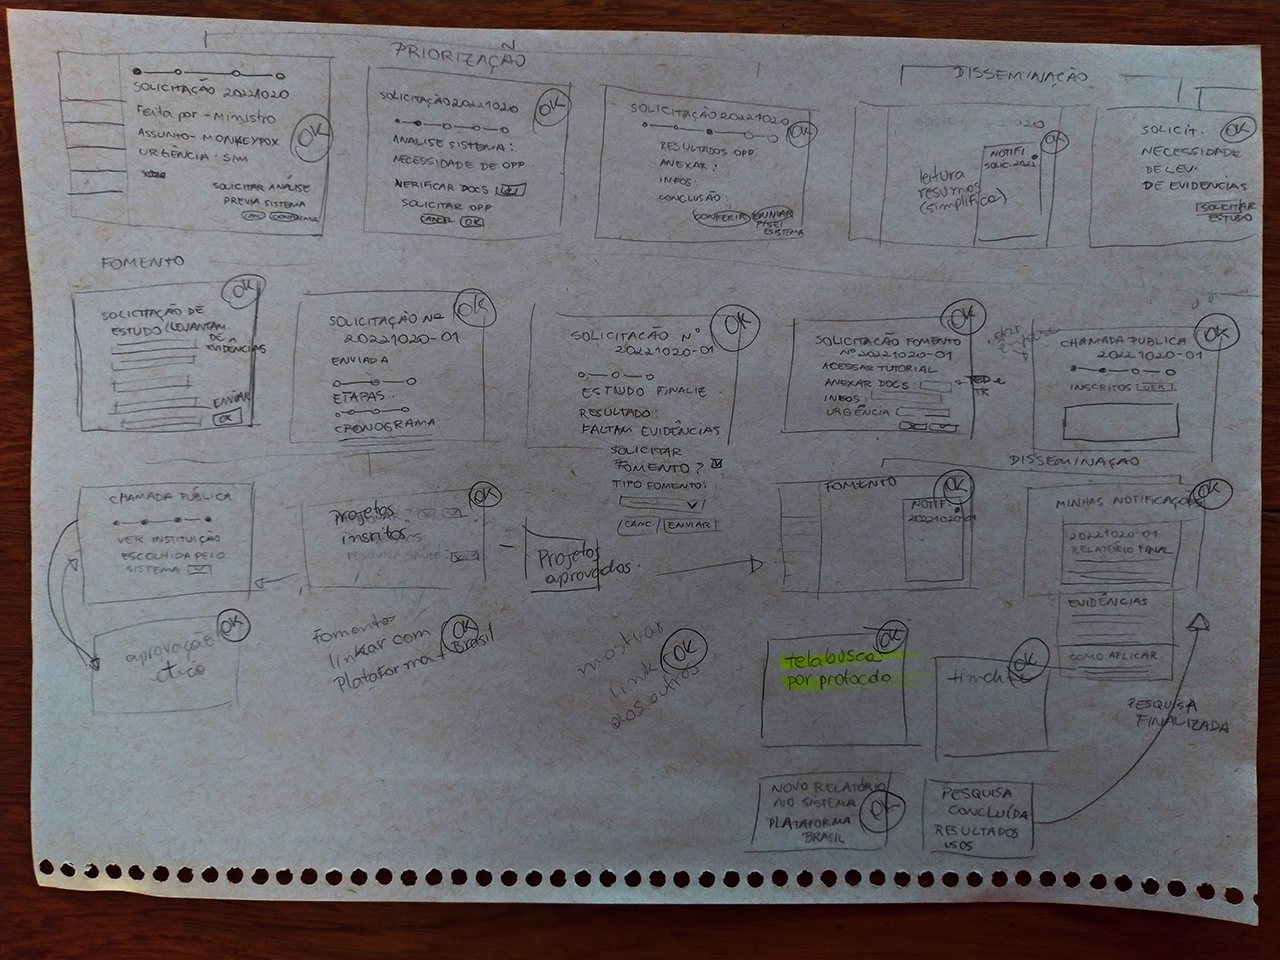 PRIORIZAÇÃO
SOLICITAÇÃO 20221020
Feita por - Ministro
ASSUNTO - MONKEYPOX
URGÊNCIA: SIM
SOLICITAR ANÁLISE
PRÉVIA SISTEMA
OK
SOLICITAÇÃO 20221020
ANALISE SISTEMA:
NECESSIDADE DE OPP
VERIFICAR DOCS
SOLICITAR OPP
OK
OK
SOLICITAÇÃO 20221020
RESULTADOS OPP
ANEXAR:
INFOS:
CONCLUSÃO:
CONFERIR
OK
DISSEMINAÇÃO
leitura
resumos
(simplifica)
NOTIFI
OK
SOLICIT.
NECESSIDADE
DE LEV.
DE EVIDENCIAS
SOLICITAR
ESTUDO
OK
FOMENTO
SOLICITAÇÃO DE
ESTUDO (LEVANTAM.
DE
EVIDÊNCIAS
ENVIAR
OK
OK
SOLICITAÇÃO Nº
20221020-01
ENVIADA
ETAPAS:
CRONOGRAMA
OK
SOLICITAÇÃO Nº
20221020-01
ESTUDO FINALIZ
RESULTADO:
FALTAM EVIDÊNCIAS
SOLICITAR
FOMENTO?
TIPO FOMENTO:
CANC. ENVIAR
OK
SOLICITAÇÃO FOMENTO
Nº 20221020-01
ACESSAR TUTORIAL
ANEXAR DOCS:
INFOS:
URGÊNCIA
OK
CHAMADA PUBLICA
20221020-01
INSCRITOS VER
OK
CHAMADA PÚBLICA
VER INSTITUIÇÃO
ESCOLHIDA PELO
SISTEMA
projetos
inscritos
OK
Projetos
aprovados.
FOMENTO
NOTIF.
20221020-01
OK
DISSEMINAÇÃO
MINHAS NOTIFICAÇÕES
20221020-01
RELATÓRIO FINAL
EVIDÊNCIAS
COMO APLICAR
OK
aprovação
ético
OK
Fomento-
linkar com
Plataforma + Brasil
OK
mostrar
link
dos outros
OK
tela busca
por protocolo
OK
OK
PESQUISA
FINALIZADA
NOVO RELATÓRIO
NO SISTEMA
PLATAFORMA
BRASIL
OK
PESQUISA
CONCLUÍDA
RESULTADOS
USOS